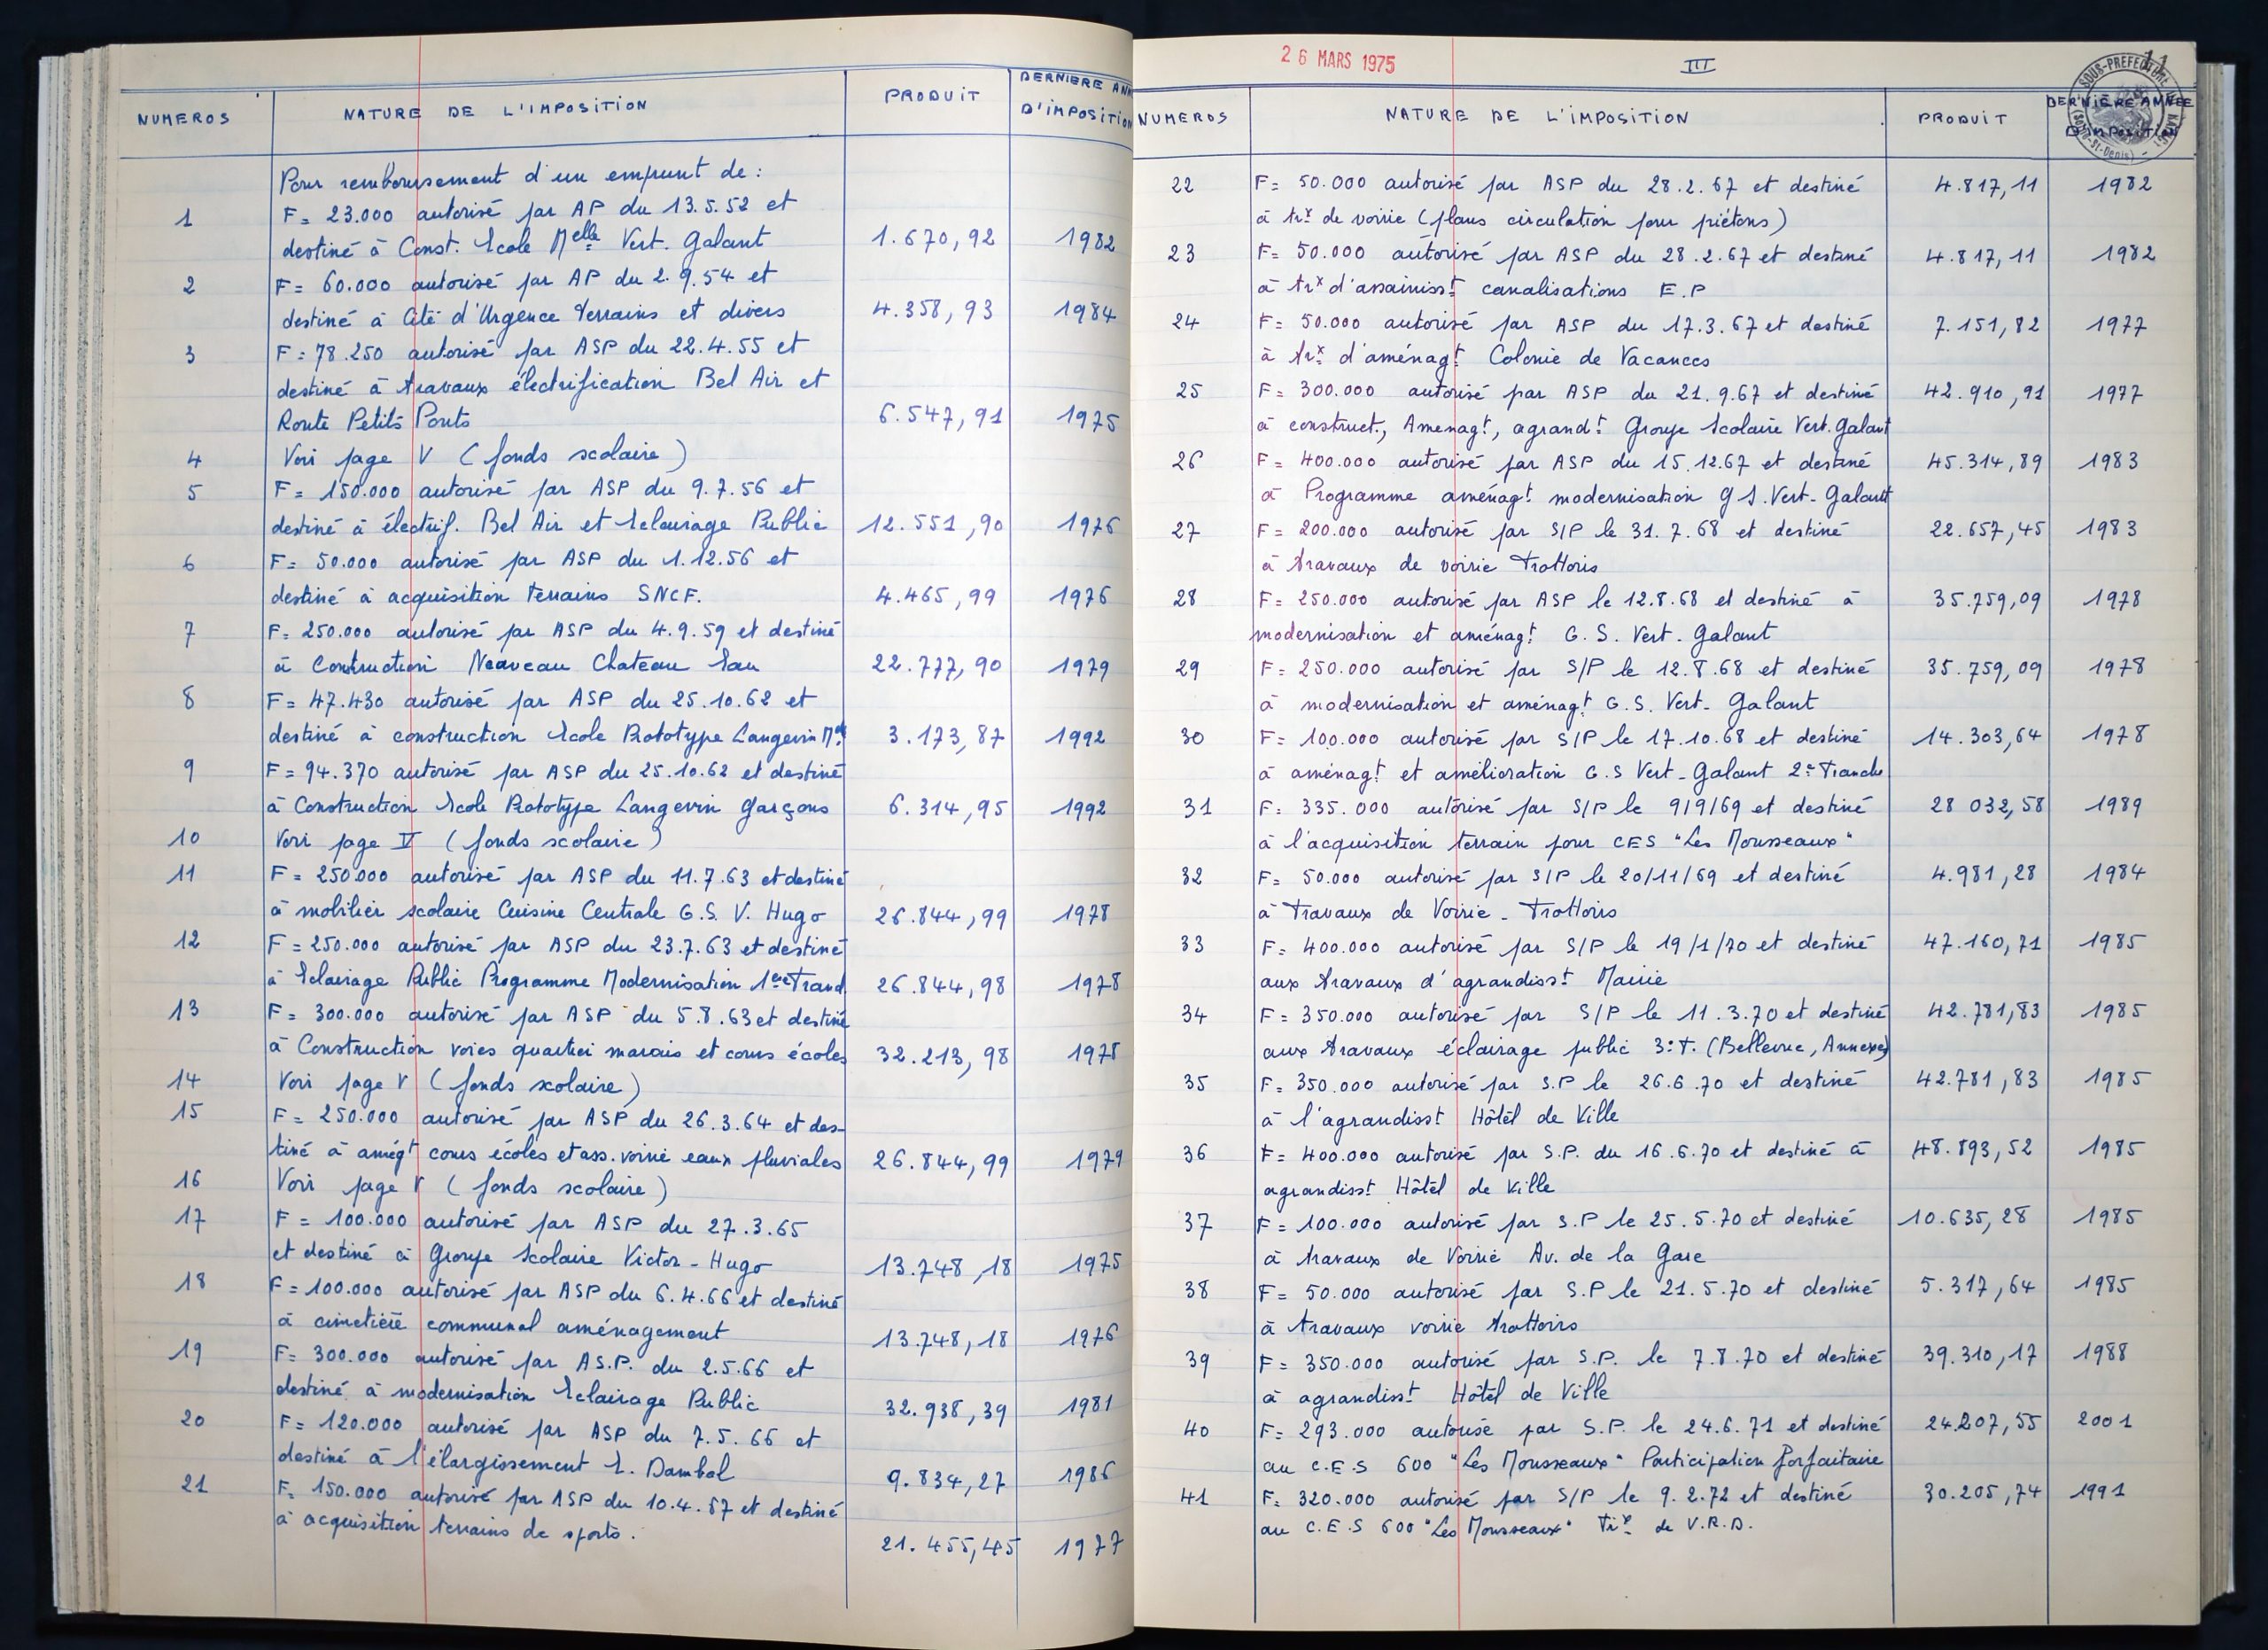 NUMEROS NATURE DE L'IMPOSITION PRODUIT DERNIERE ANN
D'IMPOSITION
Pour remboursement d'un emprunt de :
1 F = 23.000 autorisé par AP du 13.5.52 et
destiné à Const. Ecole Melle Vert. Galant 1.670,92 1982
2 F = 60.000 autorisé par AP du 2.9.54 et
destiné à Cité d'Urgence Terrains et divers 4.358,93 1984
3 F = 78.250 autorisé par ASP du 22.4.55 et
destiné à travaux électrification Bel Air et
Route Petits Ponts 6.547,91 1975
4 Voir page V (fonds scolaire)
5 F = 150.000 autorisé par ASP du 9.7.56 et
destiné à électrif. Bel Air et Eclairage Public 12.551,90 1976
6 F = 50.000 autorisé par ASP du 1.12.56 et
destiné à acquisition terrains SNCF. 4.465,99 1976
7 F = 250.000 autorisé par ASP du 4.9.59 et destiné
à Construction Nouveau Chateau Eau 22.777,90 1979
8 F = 47.430 autorisé par ASP du 25.10.62 et
destiné à construction Ecole Prototype Langevin 3.173,87 1992
9 F = 94.370 autorisé par ASP du 25.10.62 et destiné
à Construction Ecole Prototype Langevin Garçons 6.314,95 1992
10 Voir page V (fonds scolaire)
11 F = 250.000 autorisé par ASP du 11.7.63 et destiné
à mobilier scolaire Cuisine Centrale G.S. V. Hugo 26.844,99 1978
12 F = 250.000 autorisé par ASP du 23.7.63 et destiné
à Eclairage Public Programme Modernisation 1ere Tranch 26.844,98 1978
13 F = 300.000 autorisé par ASP du 5.8.63 et destiné
à Construction voies quartier marais et cours écoles 32.213,98 1978
14 Voir page V (fonds scolaire)
15 F = 250.000 autorisé par ASP du 26.3.64 et des-
tiné à amégt cours écoles et ass. voirie eaux pluviales 26.844,99 1979
16 Voir page V (fonds scolaire)
17 F = 100.000 autorisé par ASP du 27.3.65
et destiné à Groupe Scolaire Victor - Hugo 13.748,18 1975
18 F = 100.000 autorisé par ASP du 6.4.66 et destiné
à cimetière communal aménagement 13.748,18 1976
19 F = 300.000 autorisé par AS.P. du 2.5.66 et
destiné à modernisation Eclairage Public 32.938,39 1981
20 F = 120.000 autorisé par ASP du 7.5.66 et
destiné à l'élargissement E. Dambel 9.834,27 1986
21 F = 150.000 autorisé par ASP du 10.4.67 et destiné
à acquisition terrains de sports. 21.455,45 1977
26 MARS 1975 III 11
SOUS-PREFECTURE
(Seine-St-Denis)
NUMEROS NATURE DE L'IMPOSITION PRODUIT DERNIÈRE ANNEE
D'IMPOSITION
22 F = 50.000 autorisé par ASP du 28.2.67 et destiné 4.817,11 1982
à trx de voirie (plans circulation pour piétons)
23 F = 50.000 autorisé par ASP du 28.2.67 et destiné 4.817,11 1982
à trx d'assainisst canalisations E.P
24 F = 50.000 autorisé par ASP du 17.3.67 et destiné 7.151,82 1977
à trx d'aménagt Colonie de Vacances
25 F = 300.000 autorisé par ASP du 21.9.67 et destiné 42.910,91 1977
à construct, Amenagt, agrandt Groupe Scolaire Vert. Galant
26 F = 400.000 autorisé par ASP du 15.12.67 et destiné 45.314,89 1983
à Programme aménagt modernisation G S. Vert- Galant
27 F = 200.000 autorisé par S/P le 31.7.68 et destiné 22.657,45 1983
à travaux de voirie Trottoirs
28 F = 250.000 autorisé par ASP le 12.8.68 et destiné à 35.759,09 1978
modernisation et aménagt G. S. Vert- Galant
29 F = 250.000 autorisé par S/P le 12.8.68 et destiné 35.759,09 1978
à modernisation et aménagt G.S. Vert- Galant
30 F = 100.000 autorisé par S/P le 17.10.68 et destiné 14.303,64 1978
à aménagt et amélioration G.S Vert-Galant 2e Tranche
31 F = 335.000 autorisé par S/P le 9/9/69 et destiné 28 032,58 1989
à l'acquisition terrain pour CES "Les Mousseaux"
32 F = 50.000 autorisé par S/P le 20/11/69 et destiné 4.981,28 1984
à Travaux de Voirie - Trottoirs
33 F = 400.000 autorisé par S/P le 19/1/70 et destiné 47.160,71 1985
aux travaux d'agrandisst Mairie
34 F = 350.000 autorisé par S/P le 11.3.70 et destiné 42.781,83 1985
aux travaux éclairage public 3e T. (Bellevue, Annexe)
35 F = 350.000 autorisé par S.P le 26.6.70 et destiné 42.781,83 1985
à l'agrandisst Hôtel de Ville
36 F = 400.000 autorisé par S.P. du 16.6.70 et destiné à 48.893,52 1985
agrandisst Hôtel de Ville
37 F = 100.000 autorisé par S.P le 25.5.70 et destiné 10.635,28 1985
à travaux de Voirie Av. de la Gare
38 F = 50.000 autorisé par S.P le 21.5.70 et destiné 5.317,64 1985
à travaux voirie trottoirs
39 F = 350.000 autorisé par S.P. le 7.8.70 et destiné 39.310,17 1988
à agrandisst Hôtel de Ville
40 F = 293.000 autorisé par S.P. le 24.6.71 et destiné 24.207,55 2001
au C.E.S 600 "Les Mousseaux" Participation forfaitaire
41 F = 320.000 autorisé par S/P le 9.2.72 et destiné 30.205,74 1991
au C.E.S 600 "Les Mousseaux" Trx de V.R.D.